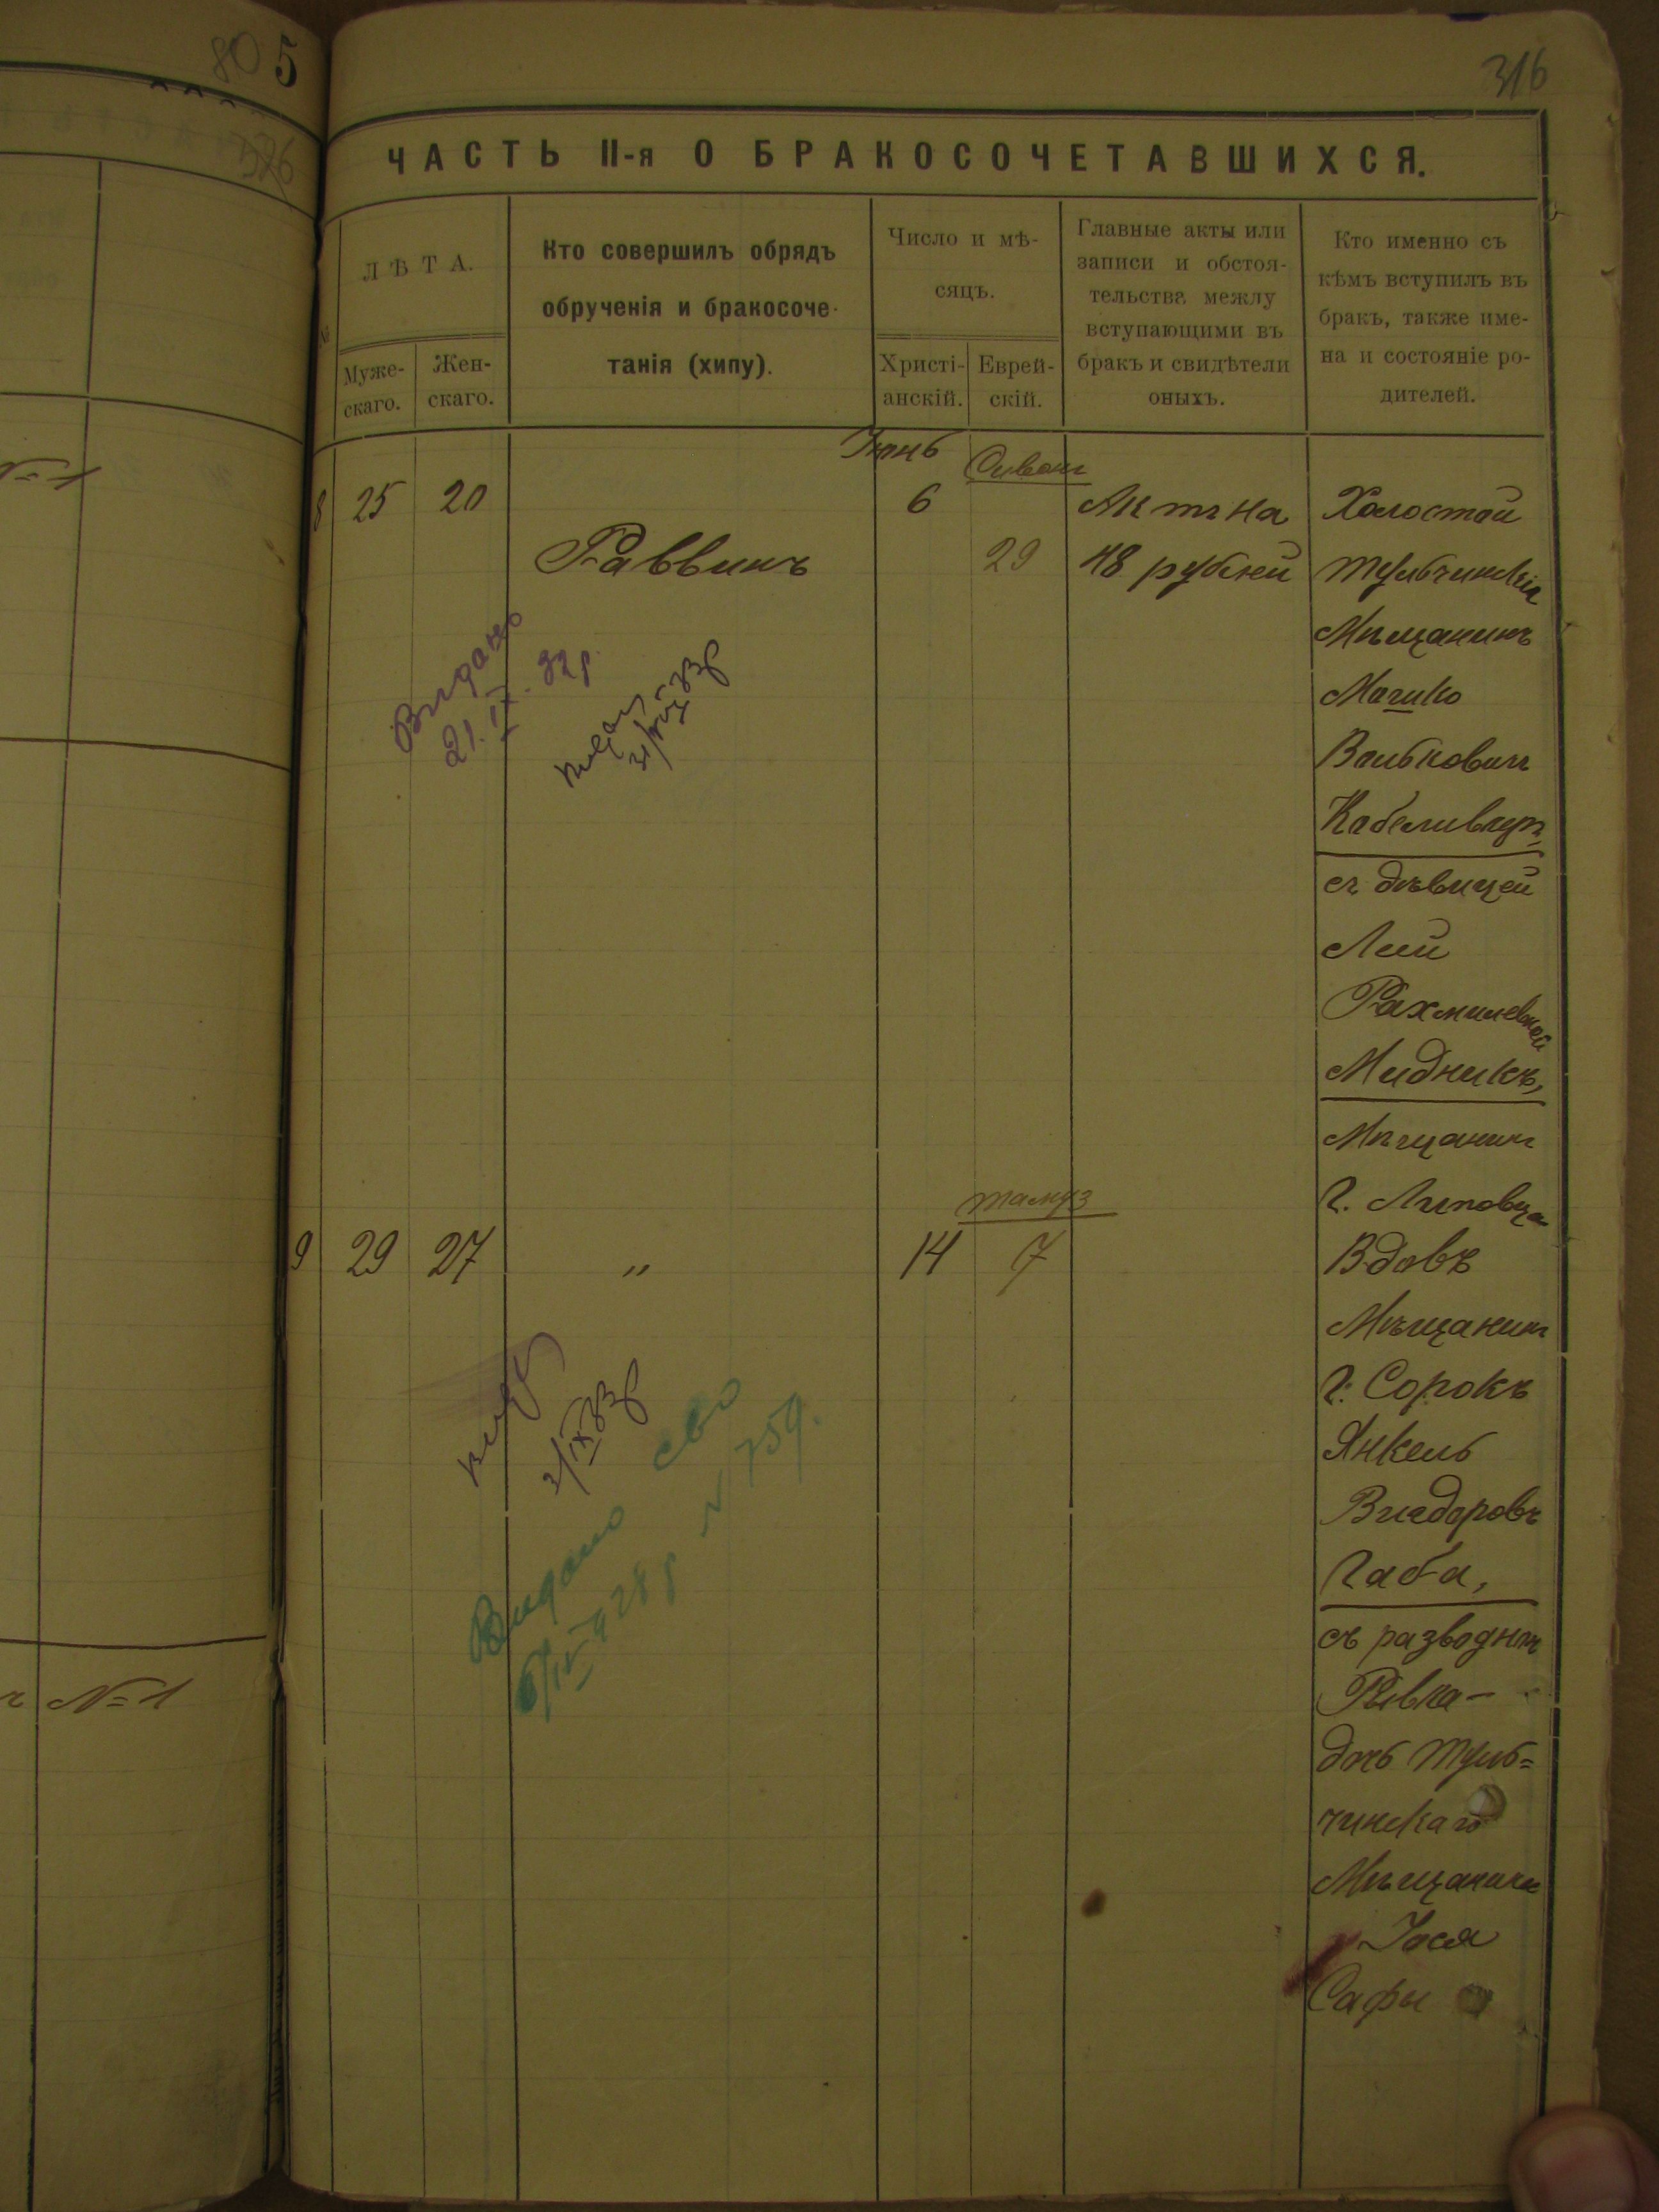 80 5
326
316
ЧАСТЬ II-я О БРАКОСОЧЕТАВШИХСЯ.
№
ЛѢТА.
Муже-
скаго.
Жен-
скаго.
Кто совершилъ обрядъ
обрученія и бракосоче-
танія (хипу).
Число и мѣ-
сяцъ.
Христі-
анскій.
Еврей-
скій.
Главные акты или
записи и обстоя-
тельства межлу
вступающими въ
бракъ и свидѣтели
оныхъ.
Кто именно съ
кѣмъ вступилъ въ
бракъ, также име-
на и состояніе ро-
дителей.
№ 1
8
25
20
Раввинъ
Іюнь
6
Сиван
29
Актъ на
48 рублей
Холостой
Тульчинскій
Мѣщанинъ
Волькович
съ дѣвицей
Леей
Рахмилевной
Мидникъ,
Мѣщанин
г. Липовца
Видано
21.IX.32р
33р
9
29
27
"
14
тамуз
7
Вдовъ
Мѣщанин
г. Сорокъ
Янкель
Габа,
съ разводной
Ривка-
дочь Туль=
чинскаго
Мѣщанина
Іося
Сафы
3/IX 33р
Видано сво
6/IV 928р № 759.
№ 1